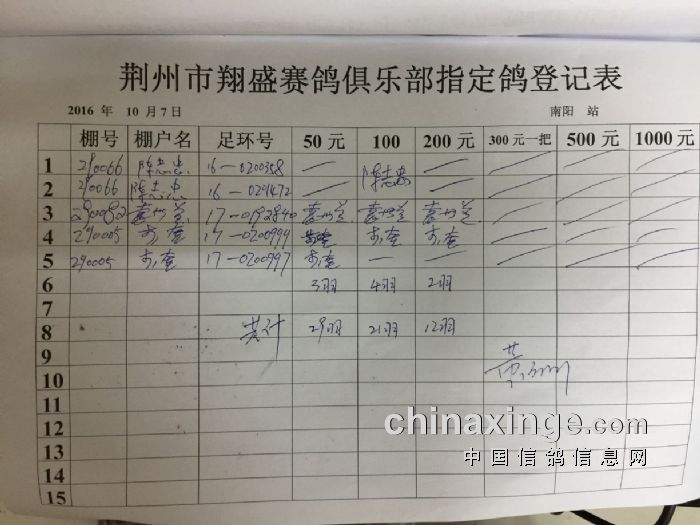 荆州市翔盛赛鸽俱乐部指定鸽登记表
2016 年 10 月 7 日 南阳 站
棚号 棚户名 足环号 50 元 100 200 元 300元一把 500 元 1000 元
1 290066 陈志忠 16-0200358 陈志忠
2 290066 陈志忠 16-0291472
3 17-0192840
4 290005 17-0200999
5 290005 17-0200997 —
6 3羽 4羽 2羽
7
8 共计 29羽 21羽 12羽
9
10
11
12
13
14
15
chinaxinge.com
中国信鸽信息网